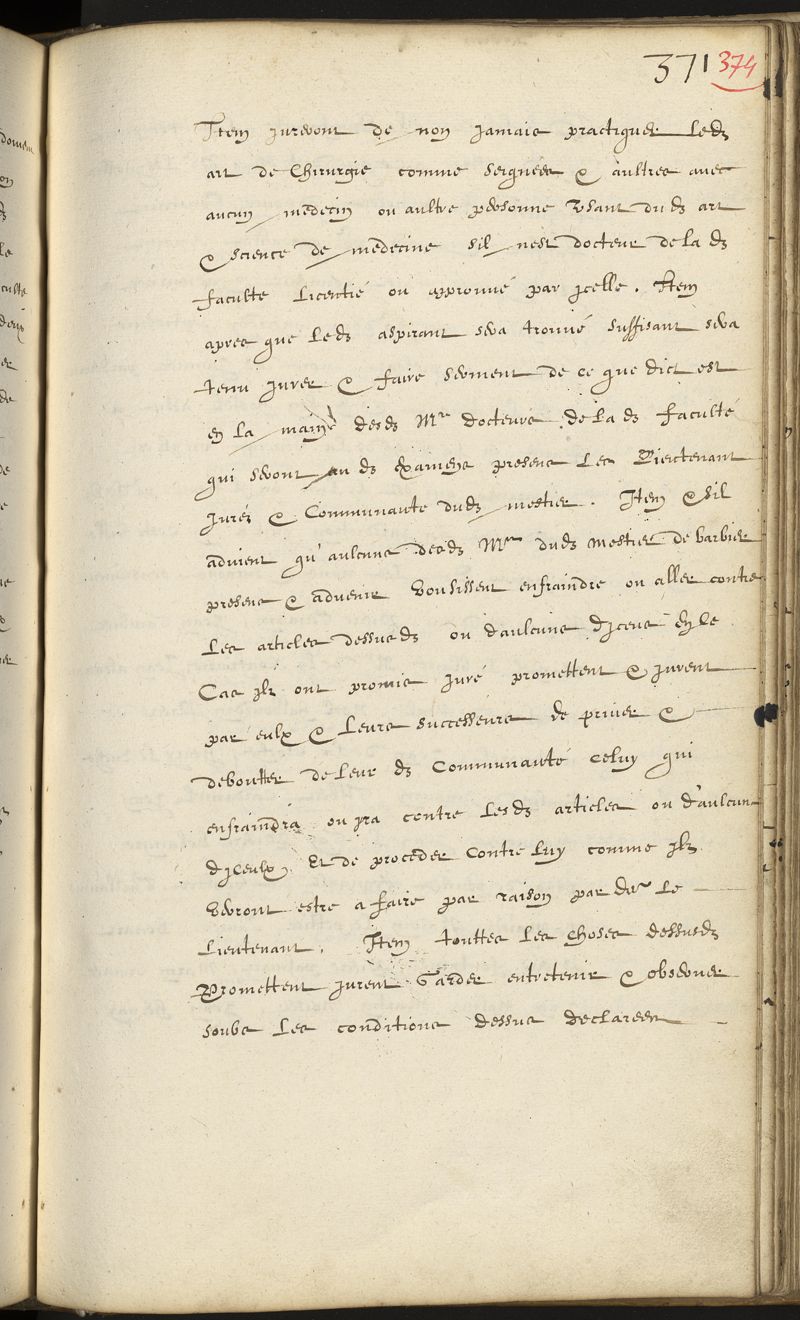 371 374
Item jureront de non jamais practiquer led
art de Chirurgie comme seignées & aultres avec
aucun médecin ou aultre personne usant dud art
& science de médecine sil nest docteur de lad
faculte Licentié ou approuué par jcelle. Item
apres que led aspirant sera trouué suffisant sera
tenu jurer & faire serment de ce que dict est
en la main desd Mrs docteurs de lad faculté
qui seront aud examens presens Les Lieutenant
Jurés & Communaute dud mestier. Item & sil
advient qu'aulcuns desd Mrs dud mestier de barbier
presens & advenir Voulsissent enfraindre ou aller contre
Les articles dessusd ou daulcuns djceux En le
Cas jlz ont promis juré promettent & jurent
par eulx & Leurs successeurs de priuer &
deboutter de leur d Communauté Celuy qui
enfraindra ou jra contre Lesd articles ou d'aulcuns
djceulx. Et de proceder Contre Luy comme jlz
Verront estre a faire par raison par le
Lieutenant. Item touttes Les choses dessusd
Promettent jurent Garder entretenir & obseruer
soubs Les conditions dessus declarees